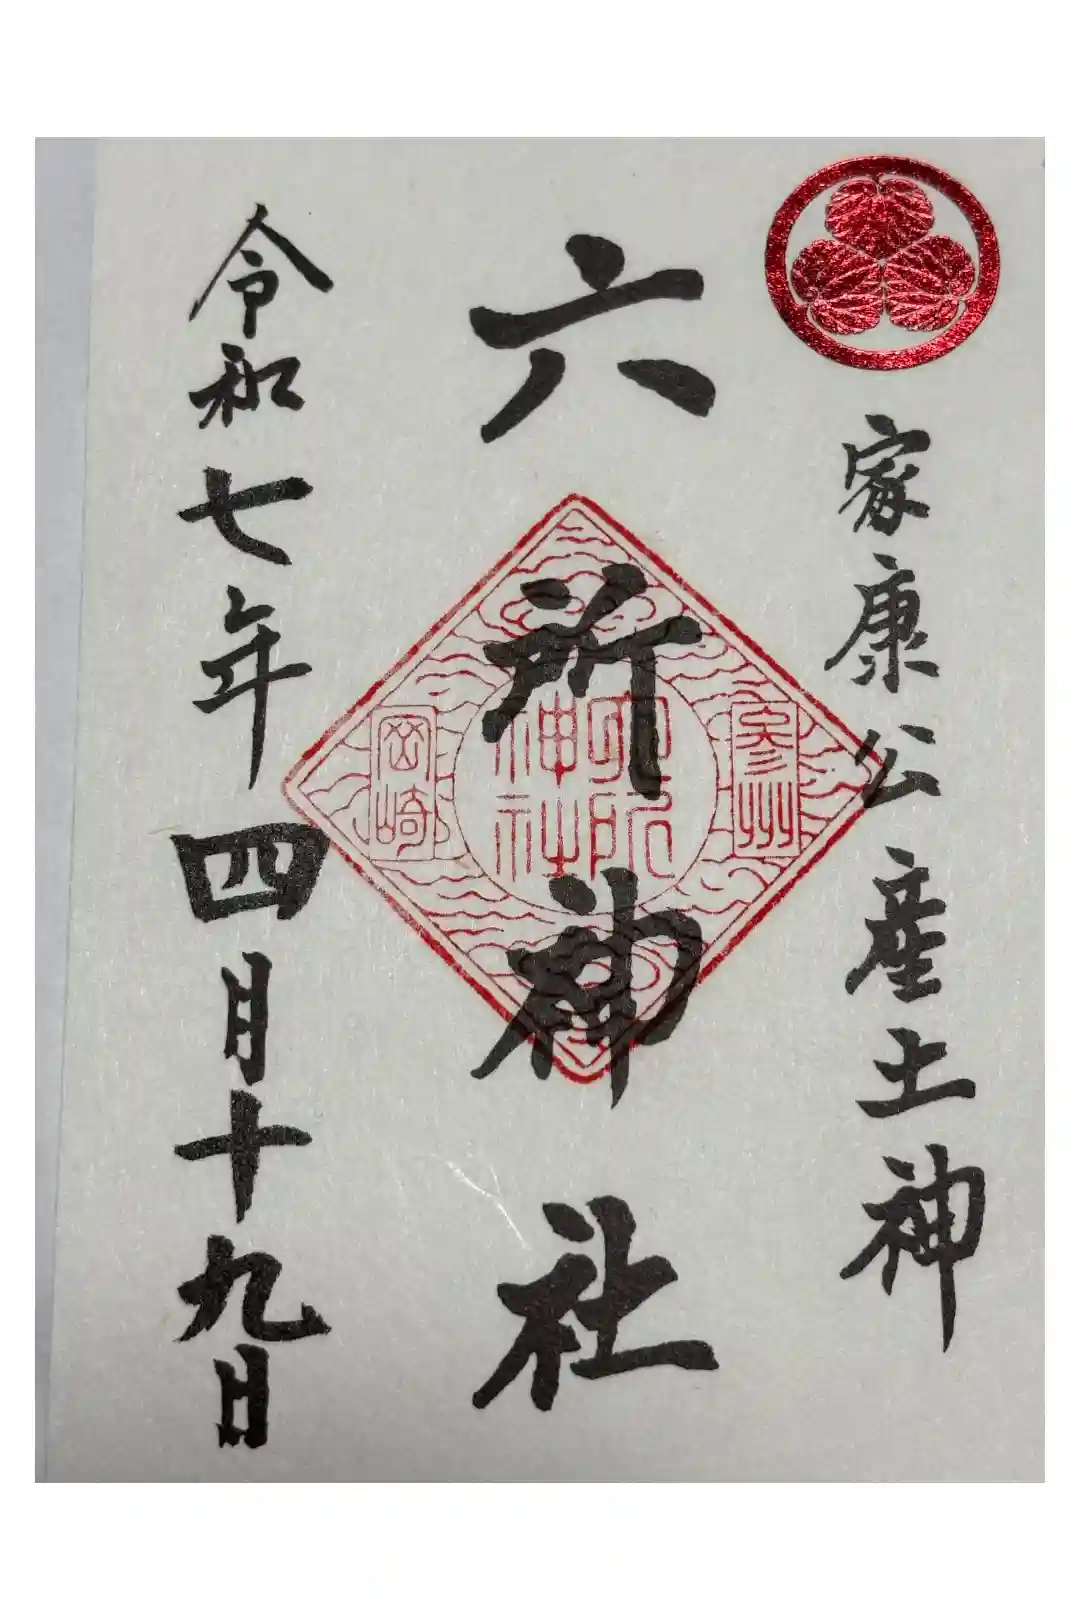 家康公産土神
六所神社
参州
六所
神社
岡崎
令和七年四月十九日